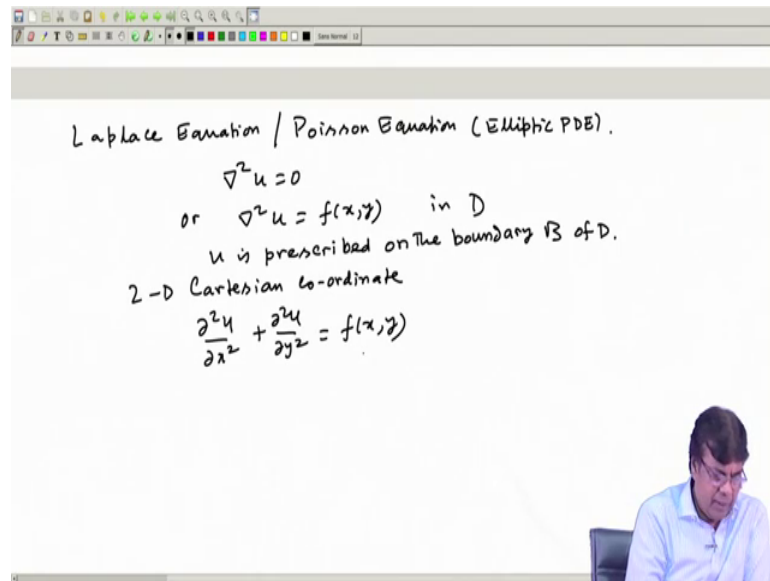 Laplace Equation / Poisson Equation (Elliptic PDE).
∇²u = 0
or ∇²u = f(x,y) in D
u is prescribed on the boundary B of D.
2-D Cartesian co-ordinate
∂²u/∂x² + ∂²u/∂y² = f(x,y)